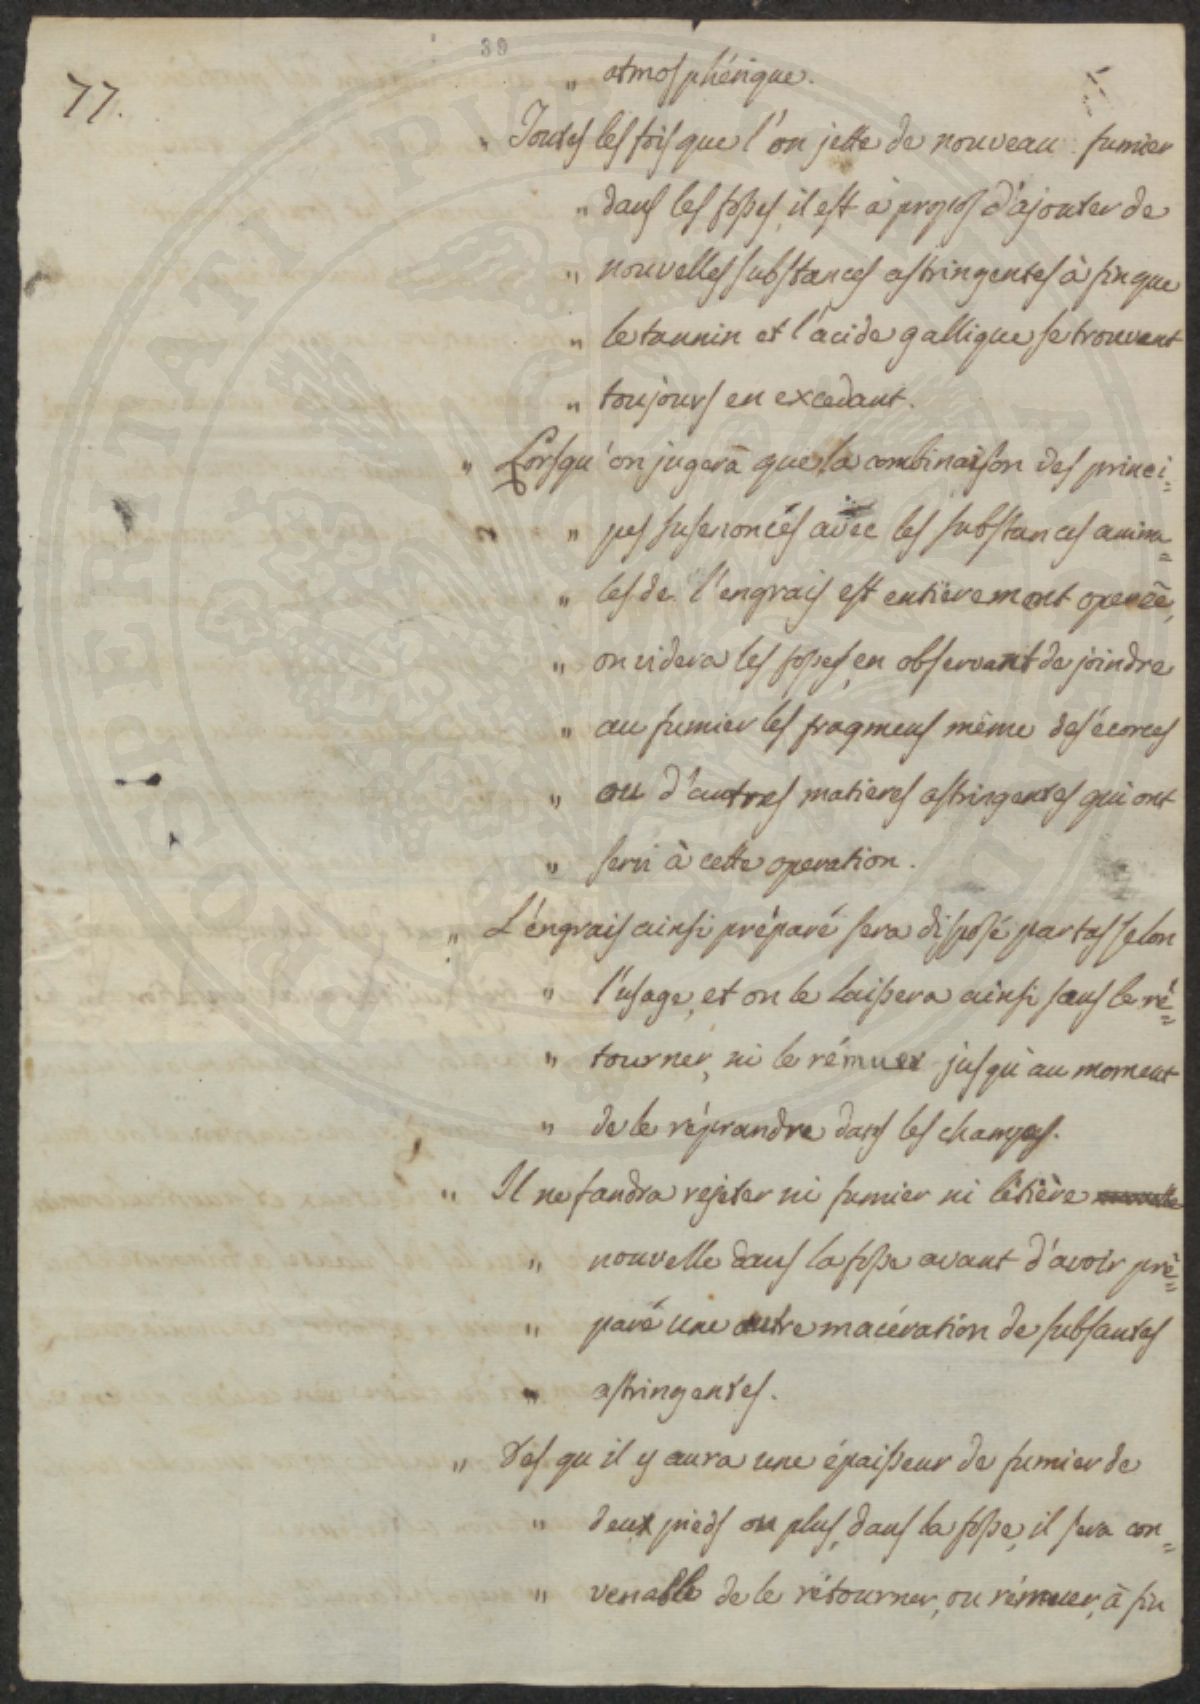 39
77.
" atmosphérique.
" Toutes les fois que l'on jette de nouveau fumier
" dans les fosses, il est à propos d'ajouter de
" nouvelles substances astringentes à fin que
" le tannin et l'acide gallique se trouvent
" toujours en excedant.
" Lorsqu'on jugera que la combinaison des princi=
" pes susenoncés avec les substances anima=
" les de l'engrais est entierement operée,
" on videra les fosses, en observant de joindre
" au fumier les fragmens même des écorces
" ou d'autres matieres astringentes qui ont
" servi à cette operation.
" L'éngrais ainsi préparé sera disposé par tas selon
" l'usage, et on le laissera ainsi sans le ré=
" tourner, ni le rémuer jusqu'au moment
" de le réprandre dans les champs.
" Il ne faudra rejeter ni fumier ni litière
" nouvelle dans la fosse avant d'avoir pré=
" paré une autre macération de subsantes
" astringentes.
" Des qu'il y aura une épaisseur de fumier de
" deux pieds ou plus, dans la fosse, il sera con=
" venable de le rétourner, ou rémuer, à fin
PROSPERITATI PUBLICAE